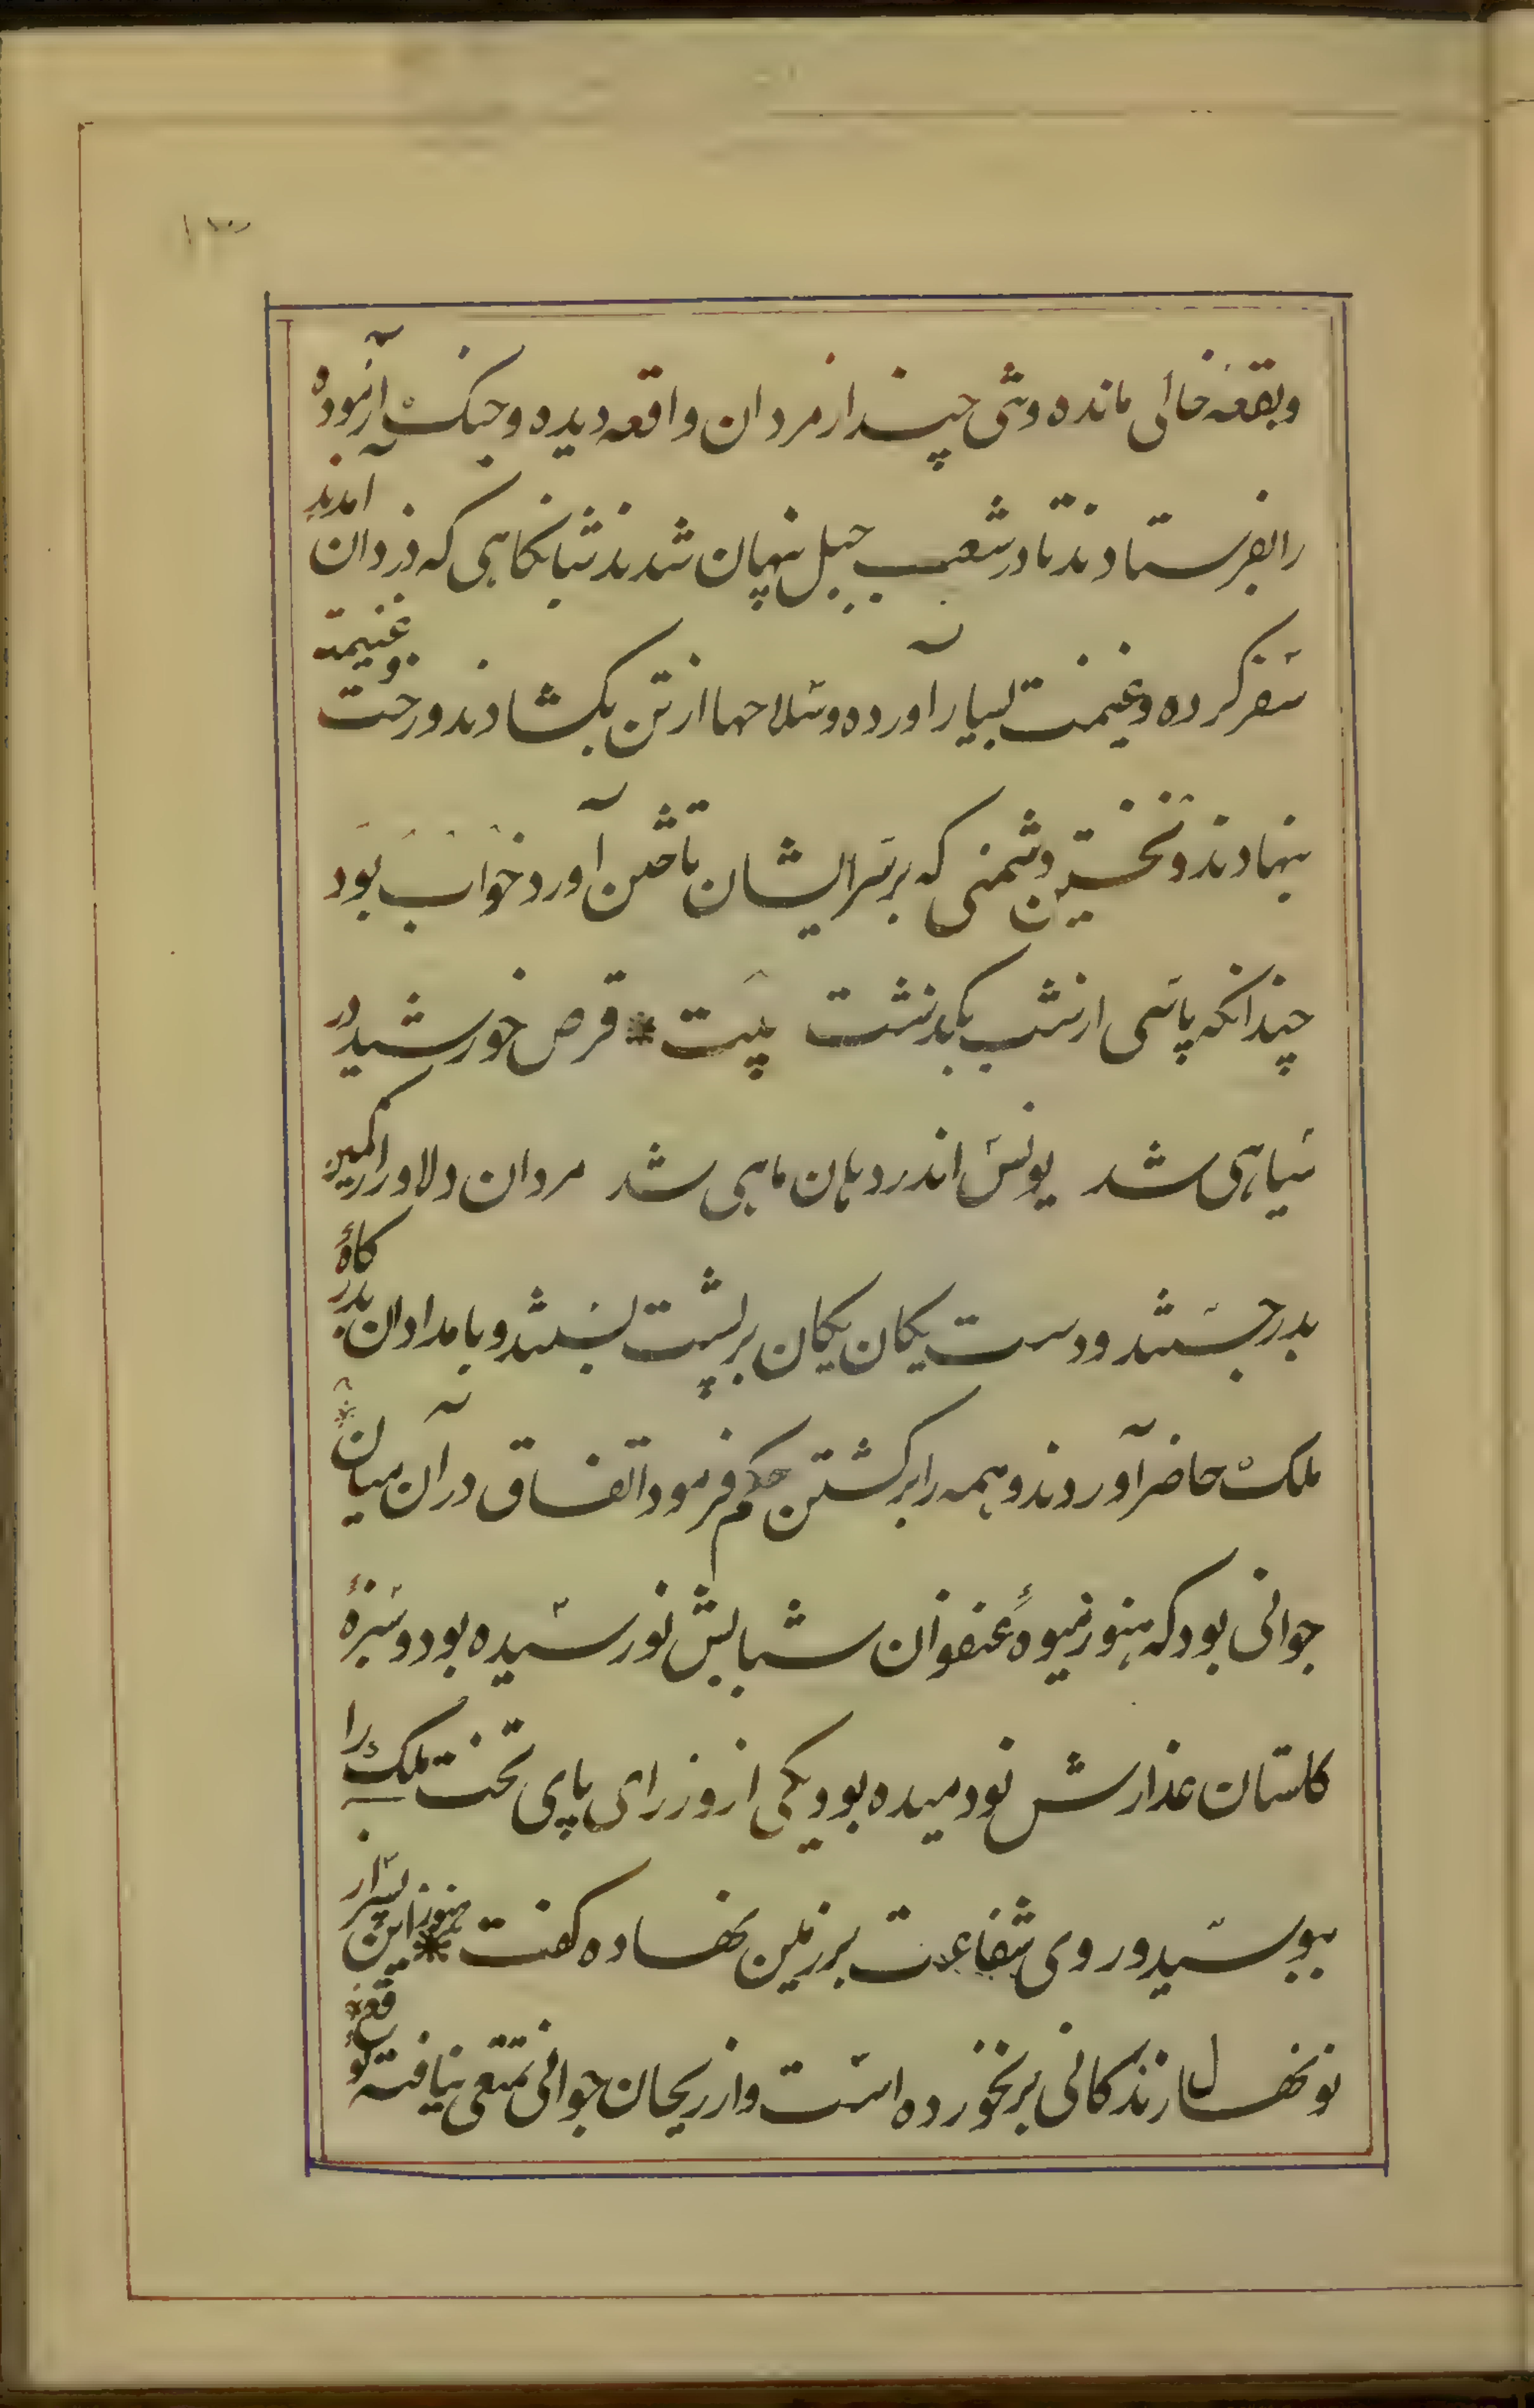 ۱۳
وبقعه خالی مانده وتنی چند از مردان واقعه دیده وجنک آزموده
را بفرستادند تا در شعب جبل پنهان شدند شبانکاهی که دزدان آمدند
سفر کرده وغنیمت بسیار آورده وسلاحها از تن بکشادند ورخت وغنیمت
بنهادند ونخستین دشمنی که بر سر ایشان تاختن آورد خواب بود
چندانکه پاسی از شب بکذشت بیت * قرص خورشید در
سیاهی شد یونس اندر دهان ماهی شد مردان دلاور از کمین
کاه
بدر جستند ودست یکان یکان بر پشت بستند وبامدادان بدر
ملک حاضر آوردند وهمه را بر کشتن حکم فرمود اتفاقا در آن میان
جوانی بود که هنوز میوهٔ عنفوان شبابش نو رسیده بود وسبزهٔ
کلستان عذارش نو دمیده بود یکی از وزرای پای تخت ملک را
ببوسید وروی شفاعت بر زمین نهاده کفت * هنوز این پسر از
نونهال زندکانی بر نخورده است واز ریحان جوانی تمتعی نیافته توقع